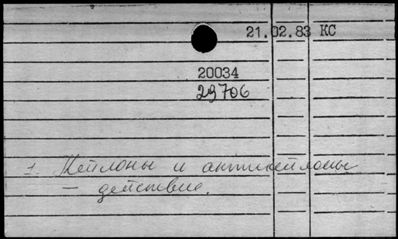 21.02.83 КС
20034
29706
1. Кейлоны и антикейлоны
— действие.